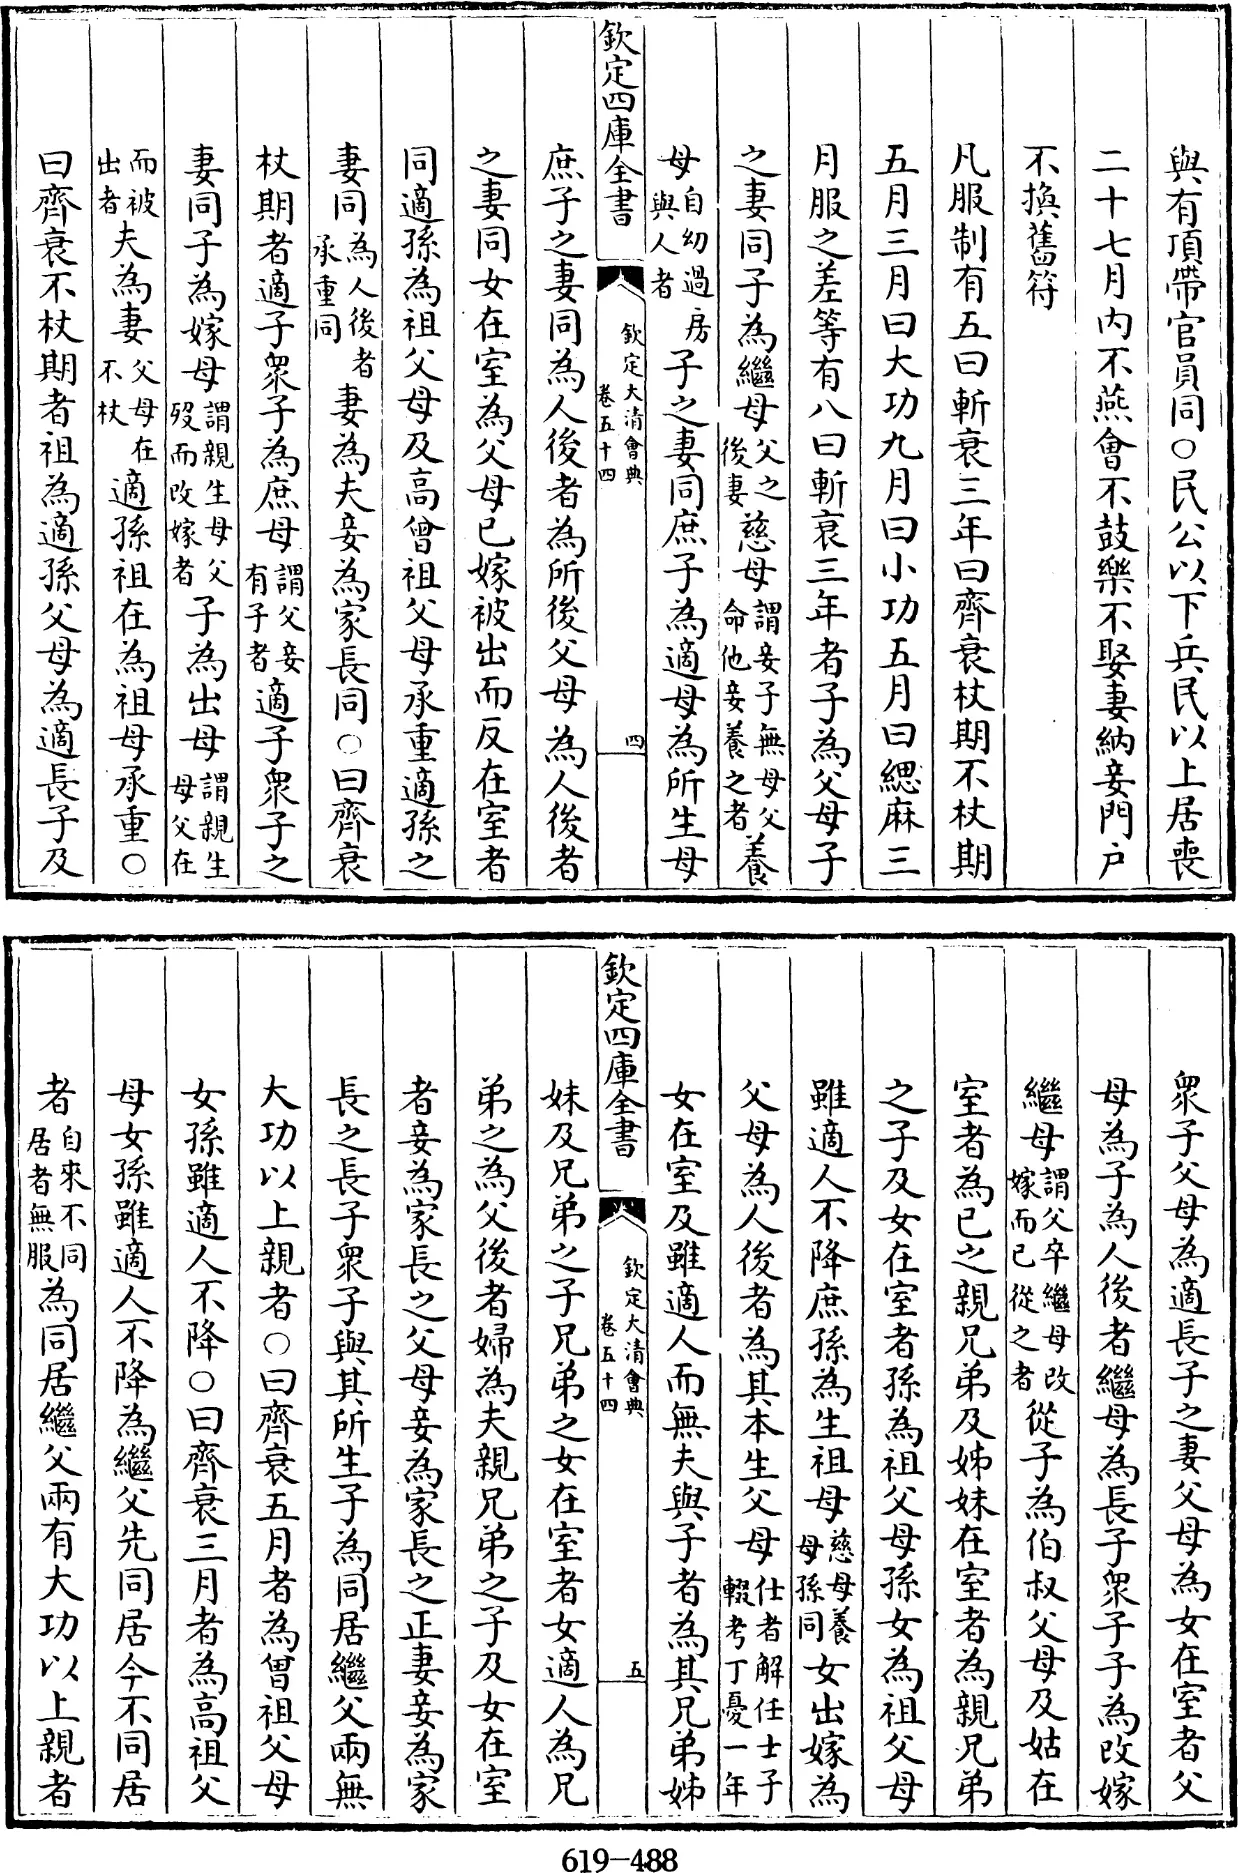 與有頂帶官員同○民公以下兵民以上居喪
二十七月内不燕會不鼓樂不娶妻納妾門户
不換舊符
凡服制有五曰斬衰三年曰齊衰杖期不杖期
五月三月曰大功九月曰小功五月曰緦麻三
月服之差等有八曰斬衰三年者子為父母子
之妻同子為繼母父之後妻慈母謂妾子無母父命他妾養之者養
母自幼過房與人者子之妻同庶子為適母為所生母
欽定四庫全書
欽定大清會典
卷五十四
四
庶子之妻同為人後者為所後父母為人後者
之妻同女在室為父母已嫁被出而反在室者
同適孫為祖父母及高曾祖父母承重適孫之
妻同為人後者承重同妻為夫妾為家長同○曰齊衰
杖期者適子衆子為庶母謂父妾有子者適子衆子之
妻同子為嫁母謂親生母父歿而改嫁者子為出母謂親生母父在
而被出者夫為妻父母在不杖適孫祖在為祖母承重○
曰齊衰不杖期者祖為適孫父母為適長子及
衆子父母為適長子之妻父母為女在室者父
母為子為人後者繼母為長子衆子子為改嫁
繼母謂父卒繼母改嫁而已從之者從子為伯叔父母及姑在
室者為已之親兄弟及姊妹在室者為親兄弟
之子及女在室者孫為祖父母孫女為祖父母
雖適人不降庶孫為生祖母慈母養母孫同女出嫁為
父母為人後者為其本生父母仕者解任士子輟考丁憂一年
女在室及雖適人而無夫與子者為其兄弟姊
欽定四庫全書
欽定大清會典
卷五十四
五
妹及兄弟之子兄弟之女在室者女適人為兄
弟之為父後者婦為夫親兄弟之子及女在室
者妾為家長之父母妾為家長之正妻妾為家
長之長子衆子與其所生子為同居繼父兩無
大功以上親者○曰齊衰五月者為曾祖父母
女孫雖適人不降○曰齊衰三月者為高祖父
母女孫雖適人不降為繼父先同居今不同居
者自來不同居者無服為同居繼父兩有大功以上親者
619-488